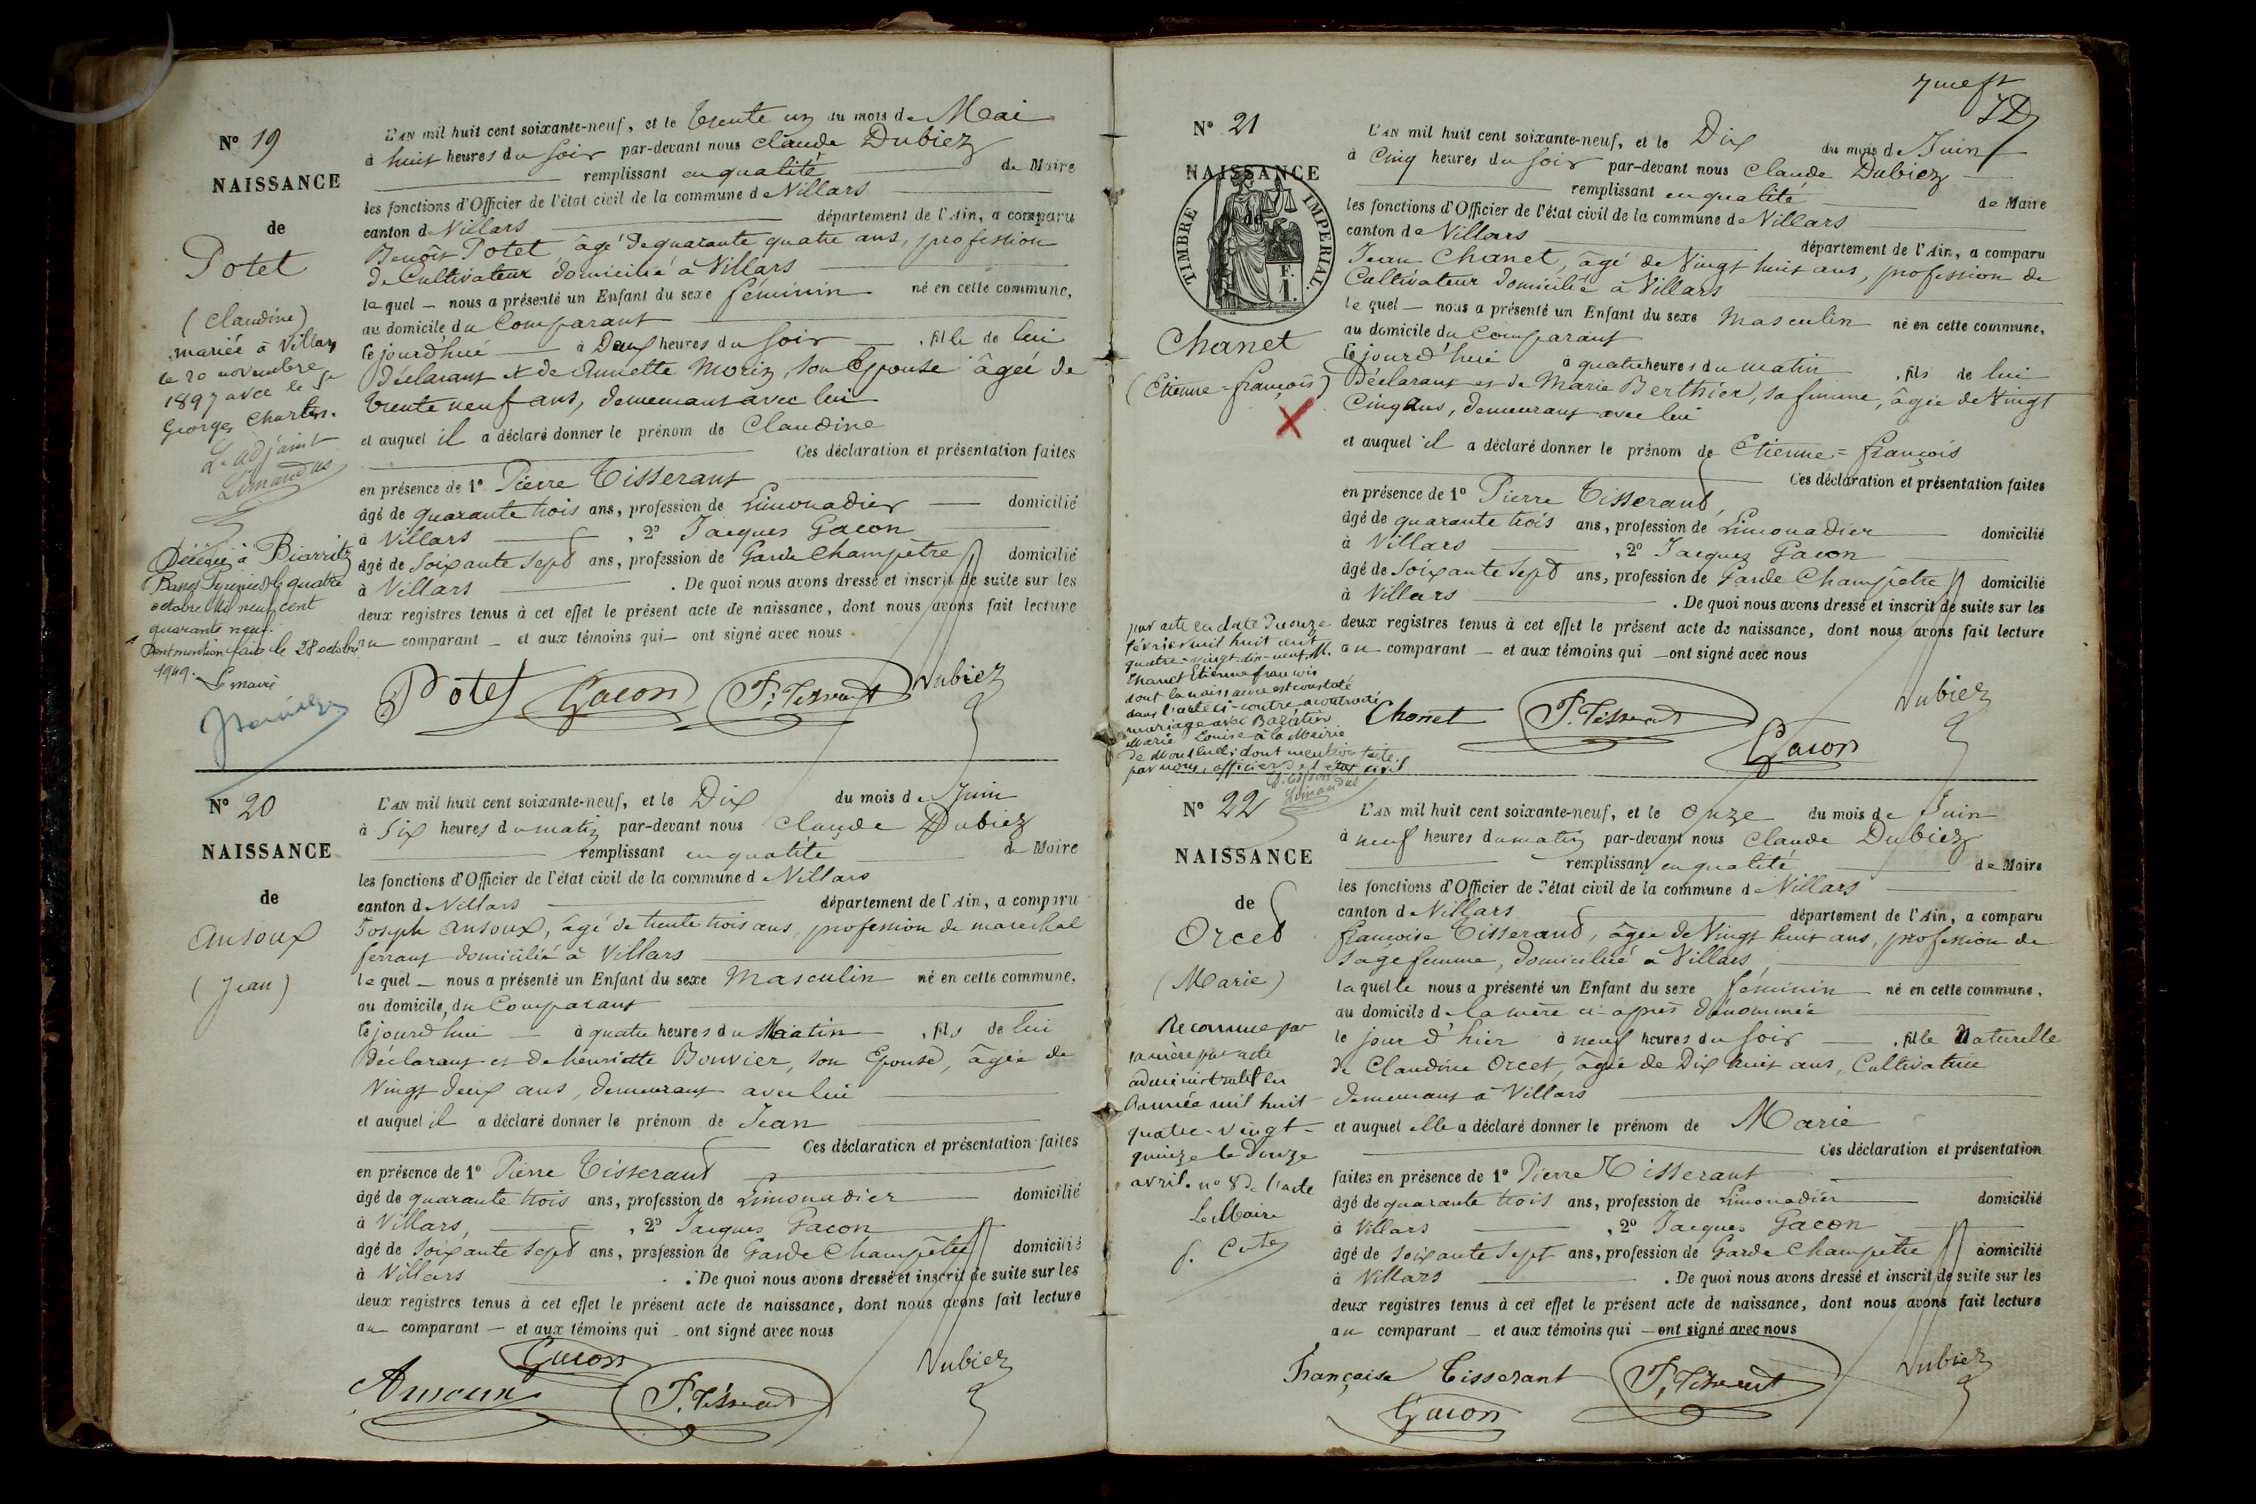 N° 19
NAISSANCE
de
Potet
(Claudine)
mariée à Villars
le 20 novembre
1897 avec le Sr
Georges Charles.
L'adjoint
Limandas
Décédée à Biarritz
Basses Pyrénées le quatre
octobre mil neuf cent
quarante neuf.
Dont mention faite le 28 octobre
1949. Le maire
L'AN mil huit cent soixante-neuf, et le trente un du mois de Mai
à huit heures du soir par-devant nous Claude Dubiez
remplissant en qualité de Maire
les fonctions d'Officier de l'état civil de la commune de Villars
canton de Villars département de l'Ain, a comparu
Benoît Potet âgé de quarante quatre ans, profession
de Cultivateur domicilié à Villars
lequel nous a présenté un Enfant du sexe féminin né en cette commune,
au domicile du Comparant
le jourd'hui à Deux heures du soir , fille de lui
Déclarant et de Annette Morin, son Epouse âgée de
trente neuf ans, demeurant avec lui
et auquel il a déclaré donner le prénom de Claudine
Ces déclaration et présentation faites
en présence de 1° Pierre Tisserant
âgé de quarante trois ans, profession de Limonadier domicilié
à Villars , 2° Jacques Gacon
âgé de soixante sept ans, profession de Garde Champêtre domicilié
à Villars . De quoi nous avons dressé et inscrit de suite sur les
deux registres tenus à cet effet le présent acte de naissance, dont nous avons fait lecture
au comparant et aux témoins qui ont signé avec nous
Potet Gacon P. Tisserant Dubiez
N° 20
NAISSANCE
de
Ansoux
(Jean)
L'AN mil huit cent soixante-neuf, et le Dix du mois de Juin
à Six heures du matin par-devant nous Claude Dubiez
remplissant en qualité de Maire
les fonctions d'Officier de l'état civil de la commune de Villars
canton de Villars département de l'Ain, a comparu
Joseph Ansoux, âgé de trente trois ans, profession de marechal
ferrant domicilié à Villars
lequel nous a présenté un Enfant du sexe Masculin né en cette commune,
au domicile du Comparant
le jourd'hui à quatre heures du Matin , fils de lui
Déclarant et de henriette Bouvier, son Epouse, âgée de
Vingt deux ans, demeurant avec lui
et auquel il a déclaré donner le prénom de Jean
Ces déclaration et présentation faites
en présence de 1° Pierre Tisserant
âgé de quarante trois ans, profession de Limonadier domicilié
à Villars, , 2° Jacques Gacon
âgé de soixante sept ans, profession de Garde Champêtre domicilié
à Villars . De quoi nous avons dressé et inscrit de suite sur les
deux registres tenus à cet effet le présent acte de naissance, dont nous avons fait lecture
au comparant et aux témoins qui ont signé avec nous
Gacon Dubiez
Ansoux P. Tisserant
N° 21
NAISSANCE
de
TIMBRE IMPERIAL
F.
1.
Chanet
(Etienne = françois)
par acte en date du onze
février mil huit cent
quatre-vingt dix-neuf, M.
Chanet Etienne francois
dont la naissance est constaté
dans l'acte ci-contre a contracté
mariage avec
Marie Louise à la Mairie
de Montluel; dont mention faite
par nous, officier de l'état civil
Limandas
7me ft
L'AN mil huit cent soixante-neuf, et le Dix du mois de Juin
à Cinq heures du soir par-devant nous Claude Dubiez
remplissant en qualité de Maire
les fonctions d'Officier de l'état civil de la commune de Villars
canton de Villars département de l'Ain, a comparu
Jean Chanet, âgé de Vingt huit ans, profession de
Cultivateur domicilié à Villars
lequel nous a présenté un Enfant du sexe Masculin né en cette commune,
au domicile du Comparant
le jourd'hui à quatre heures du matin , fils de lui
Déclarant et de Marie Berthier, sa femme, âgée de Vingt
Cinq ans, demeurant avec lui
et auquel il a déclaré donner le prénom de Etienne = françois
Ces déclaration et présentation faites
en présence de 1° Pierre Tisserant
âgé de quarante trois ans, profession de Limonadier domicilié
à Villars , 2° Jacques Gacon
âgé de soixante sept ans, profession de Garde Champêtre domicilié
à Villars . De quoi nous avons dressé et inscrit de suite sur les
deux registres tenus à cet effet le présent acte de naissance, dont nous avons fait lecture
au comparant et aux témoins qui ont signé avec nous
Chanet P. Tisserant Dubiez
Gacon
N° 22
NAISSANCE
de
Orcet
(Marie)
Reconnue par
sa mère par acte
administratif en
l'année mil huit
quatre-vingt-
quinze le douze
avril. n° 8 de l'acte
Le Maire
L'AN mil huit cent soixante-neuf, et le onze du mois de Juin
à neuf heures du matin par-devant nous Claude Dubiez
remplissant en qualité de Maire
les fonctions d'Officier de l'état civil de la commune de Villars
canton de Villars département de l'Ain, a comparu
françoise Tisserant, âgée de Vingt huit ans, profession de
Sage femme, domiciliée à Villars,
laquelle nous a présenté un Enfant du sexe féminin né en cette commune,
au domicile de la mère ci-après dénommée
le jour d'hier à neuf heures du soir , fille Naturelle
de Claudine Orcet, âgée de Dix huit ans, Cultivatrice
demeurant à Villars
et auquel elle a déclaré donner le prénom de Marie
Ces déclaration et présentation
faites en présence de 1° Pierre Tisserant
âgé de quarante trois ans, profession de Limonadier domicilié
à Villars , 2° Jacques Gacon
âgé de soixante sept ans, profession de Garde Champêtre domicilié
à Villars . De quoi nous avons dressé et inscrit de suite sur les
deux registres tenus à cet effet le présent acte de naissance, dont nous avons fait lecture
au comparant et aux témoins qui ont signé avec nous
Françoise Tisserant P. Tisserant Dubiez
Gacon